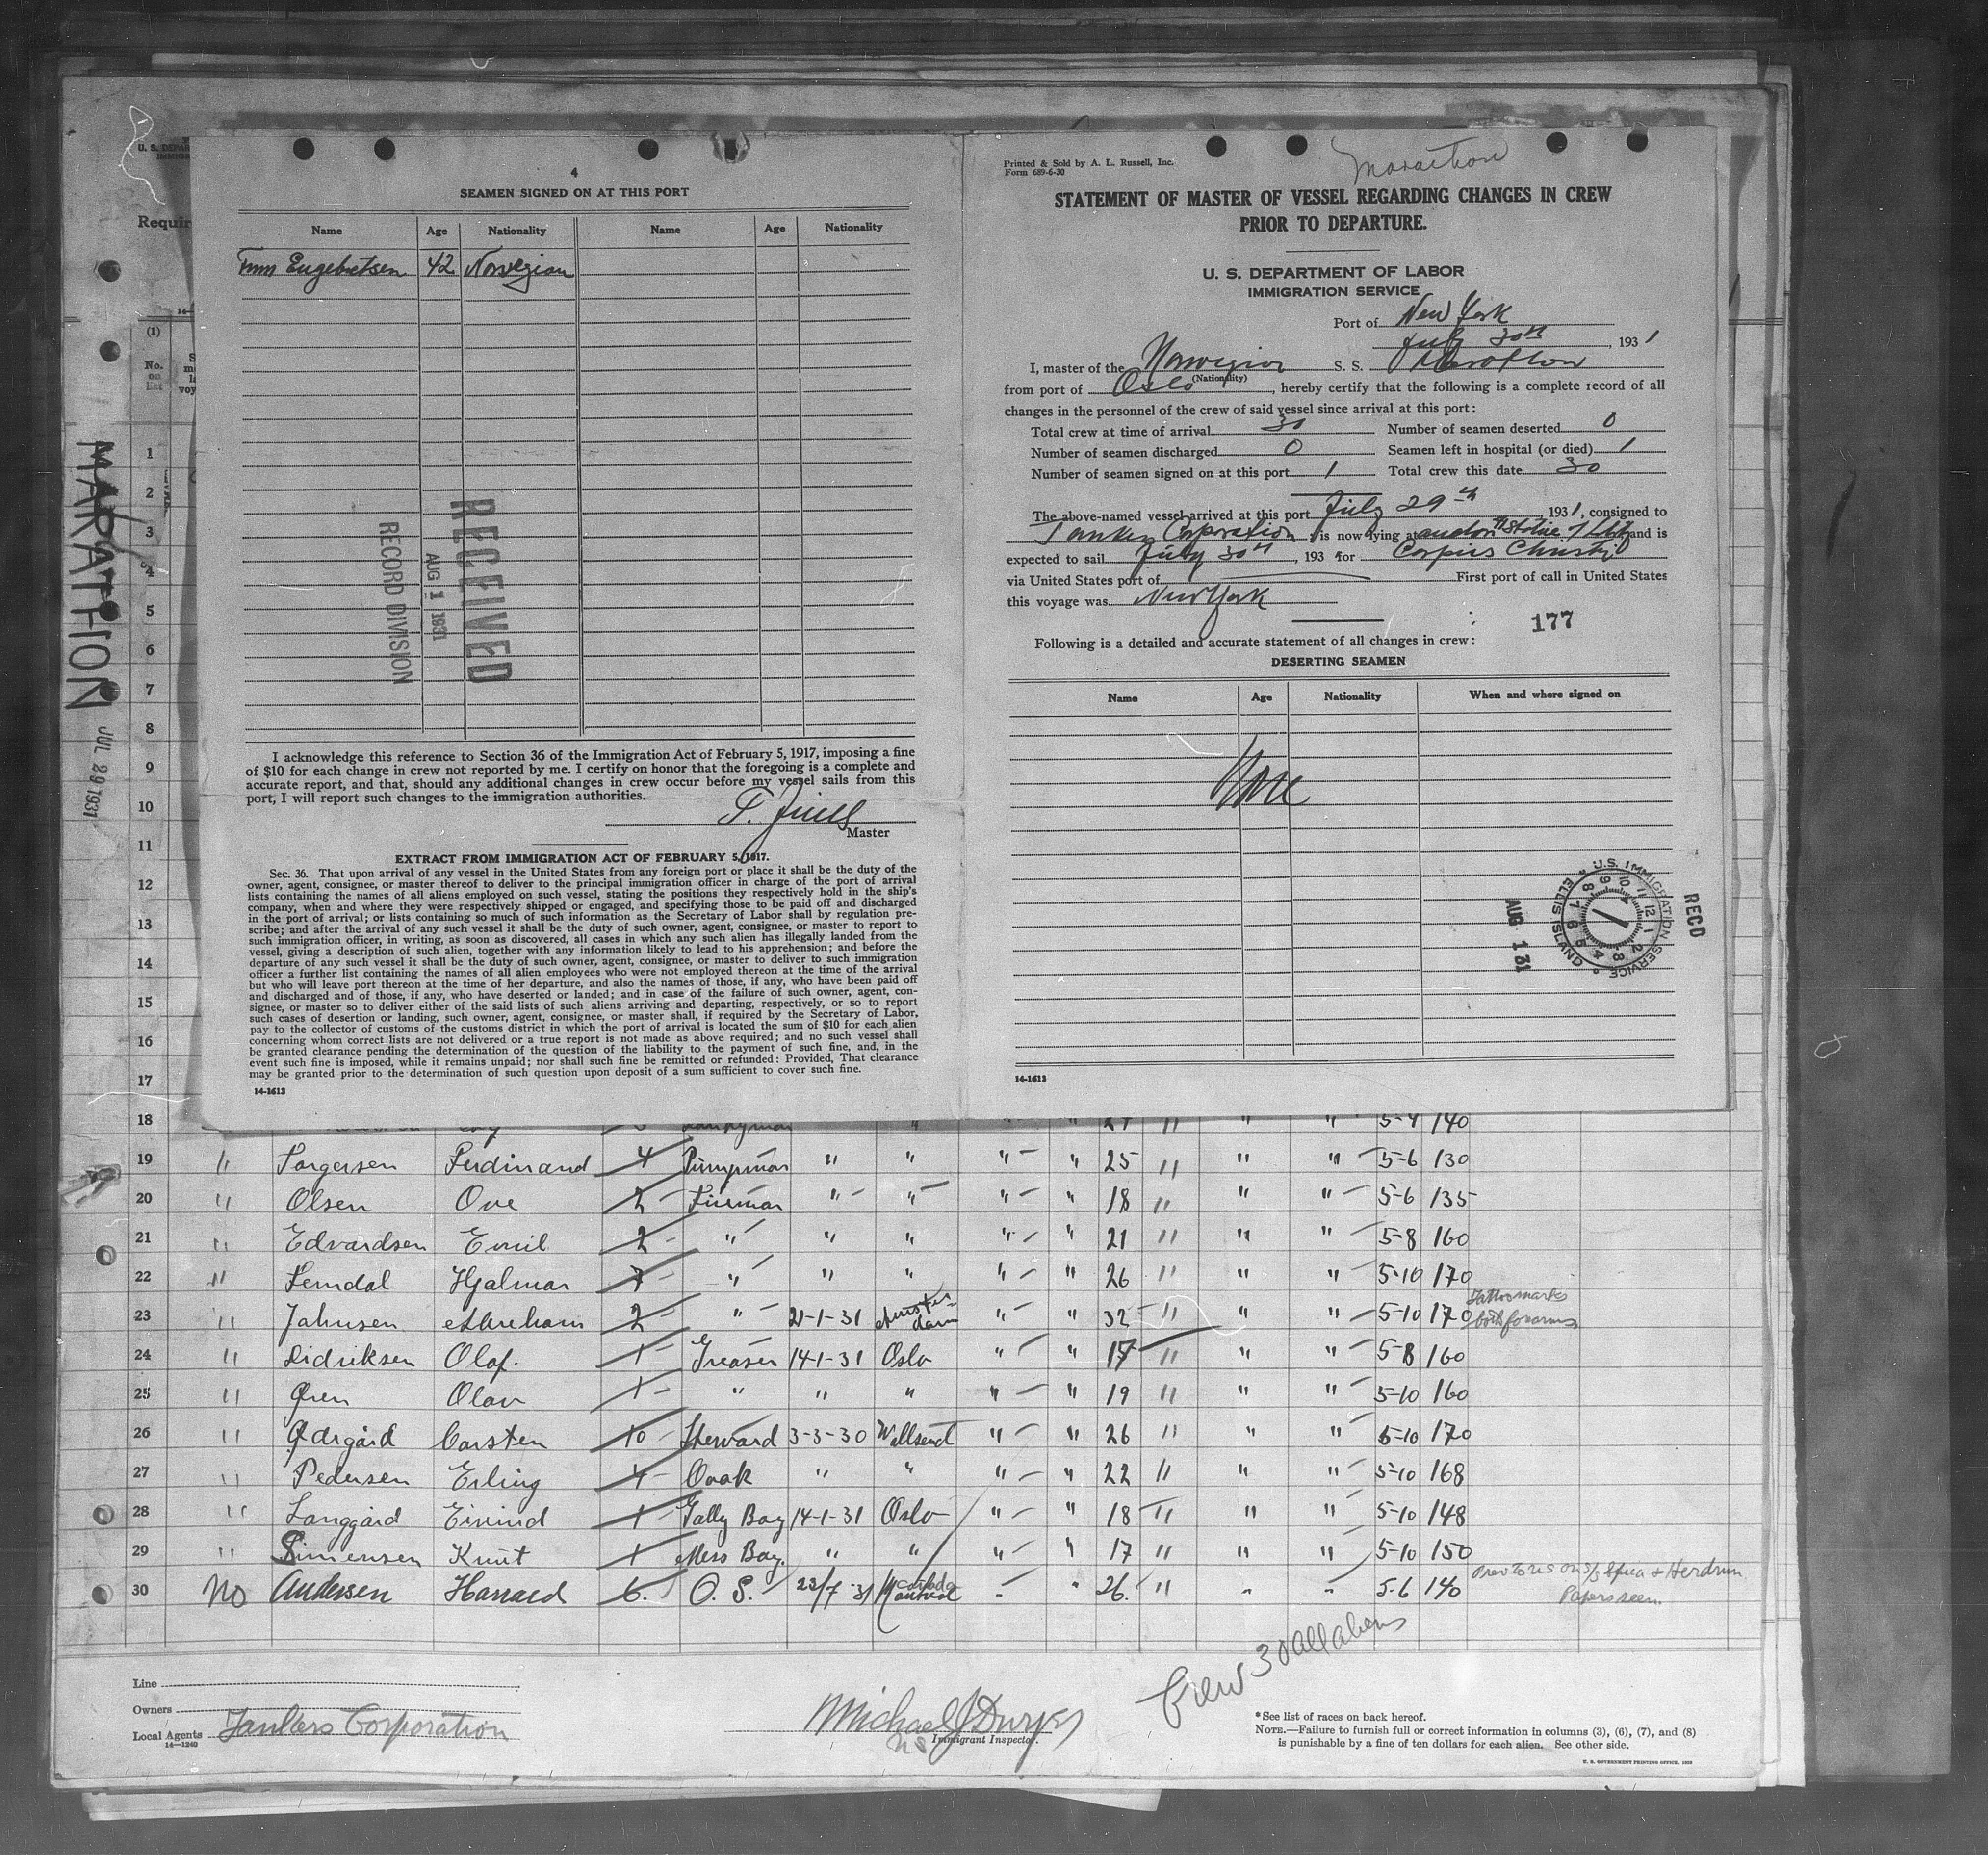 4
SEAMEN SIGNED ON AT THIS PORT
Name Age Nationality Name Age Nationality
Finn Engebretsen 42 Norwegian
RECEIVED
AUG 1 1931
RECORD DIVISION
I acknowledge this reference to Section 36 of the Immigration Act of February 5, 1917, imposing a fine
of $10 for each change in crew not reported by me. I certify on honor that the foregoing is a complete and
accurate report, and that, should any additional changes in crew occur before my vessel sails from this
port, I will report such changes to the immigration authorities.
Master
EXTRACT FROM IMMIGRATION ACT OF FEBRUARY 5, 1917.
Sec. 36. That upon arrival of any vessel in the United States from any foreign port or place it shall be the duty of the
owner, agent, consignee, or master thereof to deliver to the principal immigration officer in charge of the port of arrival
lists containing the names of all aliens employed on such vessel, stating the positions they respectively hold in the ship's
company, when and where they were respectively shipped or engaged, and specifying those to be paid off and discharged
in the port of arrival; or lists containing so much of such information as the Secretary of Labor shall by regulation pre-
scribe; and after the arrival of any such vessel it shall be the duty of such owner, agent, consignee, or master to report to
such immigration officer, in writing, as soon as discovered, all cases in which any such alien has illegally landed from the
vessel, giving a description of such alien, together with any information likely to lead to his apprehension; and before the
departure of any such vessel it shall be the duty of such owner, agent, consignee, or master to deliver to such immigration
officer a further list containing the names of all alien employees who were not employed thereon at the time of the arrival
but who will leave port thereon at the time of her departure, and also the names of those, if any, who have been paid off
and discharged and of those, if any, who have deserted or landed; and in case of the failure of such owner, agent, con-
signee, or master so to deliver either of the said lists of such aliens arriving and departing, respectively, or so to report
such cases of desertion or landing, such owner, agent, consignee, or master shall, if required by the Secretary of Labor,
pay to the collector of customs of the customs district in which the port of arrival is located the sum of $10 for each alien
concerning whom correct lists are not delivered or a true report is not made as above required; and no such vessel shall
be granted clearance pending the determination of the question of the liability to the payment of such fine, and, in the
event such fine is imposed, while it remains unpaid; nor shall such fine be remitted or refunded: Provided, That clearance
may be granted prior to the determination of such question upon deposit of a sum sufficient to cover such fine.
14-1613
Printed & Sold by A. L. Russell, Inc.
Form 689-6-30
Marathon
STATEMENT OF MASTER OF VESSEL REGARDING CHANGES IN CREW
PRIOR TO DEPARTURE.
U. S. DEPARTMENT OF LABOR
IMMIGRATION SERVICE
Port of New York
July 30th, 1931
I, master of the Norwegian S. S. Marathon
(Nationality)
from port of Oslo, hereby certify that the following is a complete record of all
changes in the personnel of the crew of said vessel since arrival at this port:
Total crew at time of arrival 30 Number of seamen deserted 0
Number of seamen discharged 0 Seamen left in hospital (or died) 1
Number of seamen signed on at this port 1 Total crew this date 30
The above-named vessel arrived at this port July 29th 1931, consigned to
Tankers Corporation is now lying at and is
expected to sail July 30th, 193 for Corpus Christi
via United States port of First port of call in United States
this voyage was New York
177
Following is a detailed and accurate statement of all changes in crew:
DESERTING SEAMEN
Name Age Nationality When and where signed on
None
U.S. IMMIGRATION SERVICE ELLIS ISLAND
RECD
AUG 1 31
14-1613
MARATHON
JUL 29 1931
U. S. DEPA
Requir
(1)
No. on list
1
2
3
4
5
6
7
8
9
10
11
12
13
14
15
16
17
18 " " " " 5-4 140
19 " Torgersen Ferdinand 4 Pumpman " " " " 25 " " " 5-6 130
20 " Olsen Ove 2 Fireman " " " " 18 " " " 5-6 135
21 " Edvardsen Emil 2 " " " " " 21 " " " 5-8 160
22 " Hjalmar 7 " " " " " 26 " " " 5-10 170
23 " Jahnsen Abreham 2 " 21-1-31 Amsterdam " " 32 " " " 5-10 170 Tattoo marks both forearms
24 " Didriksen Olaf. 1 Greaser 14-1-31 Oslo " " 17 " " " 5-8 160
25 " Olav 1 " " " " " 19 " " " 5-10 160
26 " Carsten 10 Steward 3-3-30 Wallsend " " 26 " " " 5-10 170
27 " Pedersen Erling 4 Cook " " " " 22 " " " 5-10 168
28 " Langgård Eivind 1 Gally Boy 14-1-31 Oslo " " 18 " " " 5-10 148
29 " Simensen Knut 1 Mess Boy. " " " " 17 " " " 5-10 150
30 No Andersen Harrald 6. O. S. 23/7-31 " " 26. " " " 5-6 140 Papers seen.
Crew 30 all aliens
Line
Owners
Local Agents Tankers Corporation
14-1240
Michael J Dwyer
Immigrant Inspector.
*See list of races on back hereof.
NOTE.—Failure to furnish full or correct information in columns (3), (6), (7), and (8)
is punishable by a fine of ten dollars for each alien. See other side.
U. S. GOVERNMENT PRINTING OFFICE. 1930